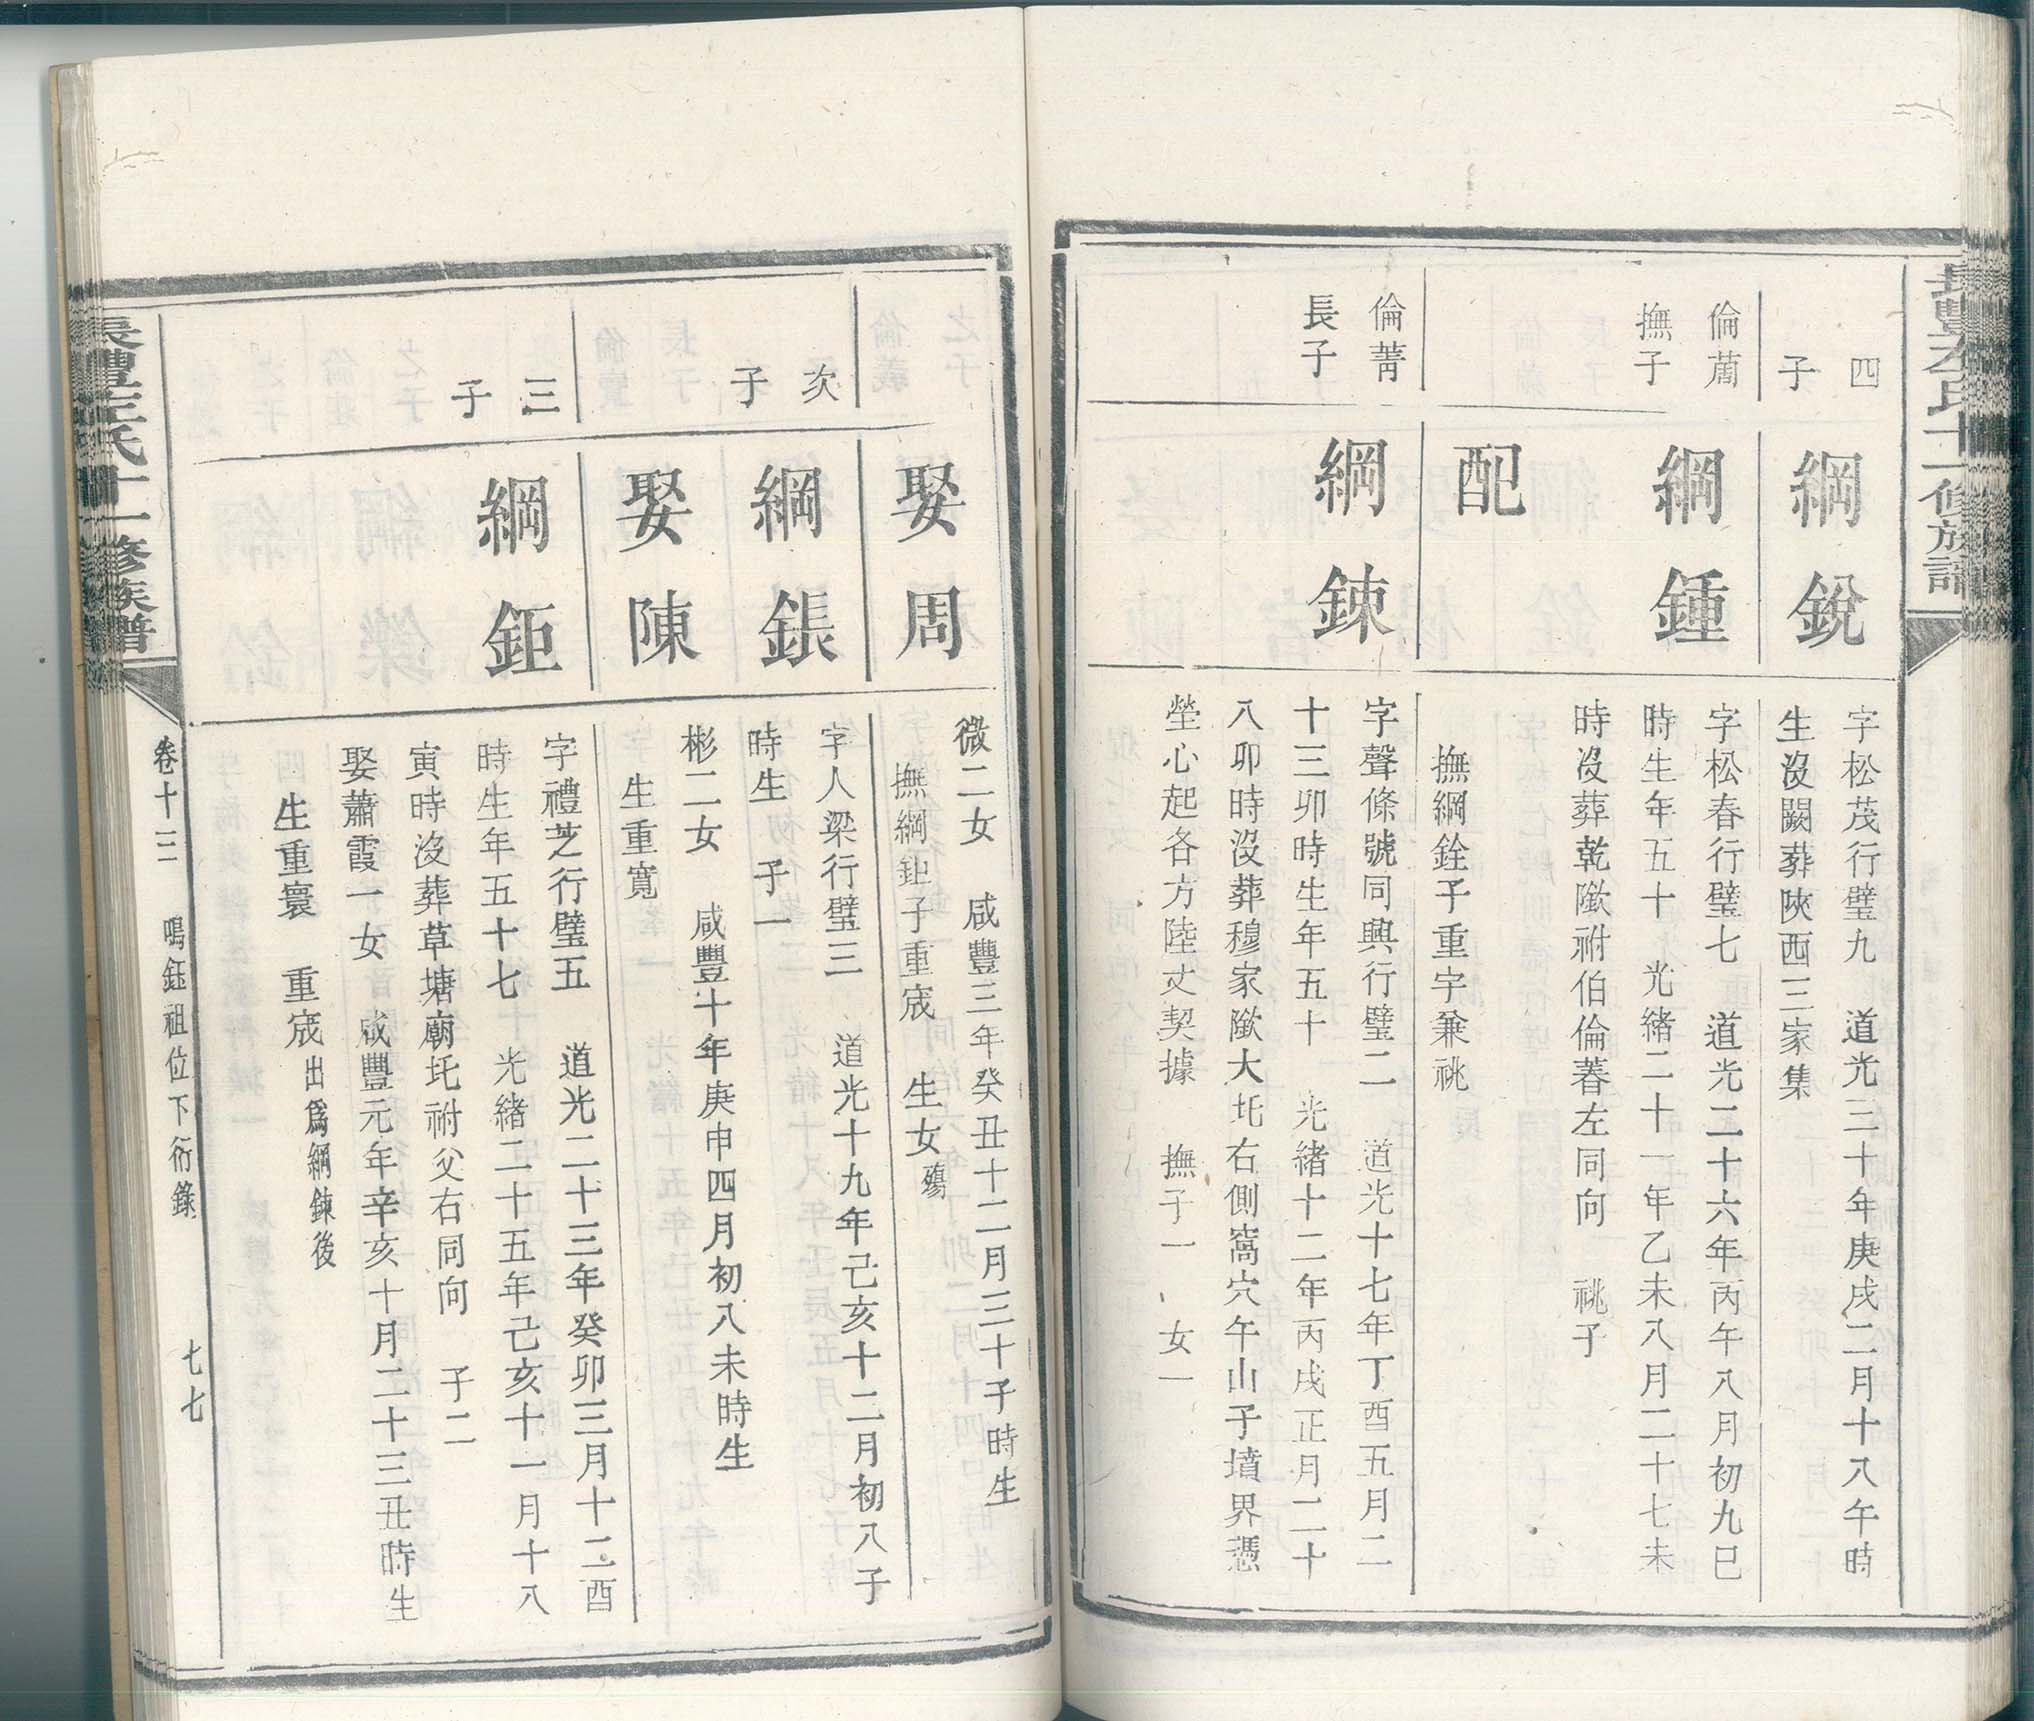 長豐左氏十一修族譜
四子
綱銳
字松茂行璧九　道光三十年庚戌二月十八午時
生沒闕葬陝西三家集
倫萳
撫子
綱鍾
字松春行璧七　道光二十六年丙午八月初九巳
時生年五十　光緒二十一年乙未八月二十七未
時沒葬乾隞祔伯倫萶左同向　祧子
配
撫綱銓子重宇兼祧
倫菁
長子
綱鋉
字聲條號同興行璧二　道光十七年丁酉五月二
十三卯時生年五十　光緒十二年丙戌正月二十
八卯時沒葬穆家隞大圫右側窩穴午山子墳界憑
塋心起各方陸丈契據　撫子一　女一
娶周
微二女　咸豐三年癸丑十二月三十子時生
撫綱鉅子重宬　生女殤
次子
綱鋹
字人梁行璧三　道光十九年己亥十二月初八子
時生　子一
娶陳
彬二女　咸豐十年庚申四月初八未時生
生重寬
三子
綱鉅
字禮芝行璧五　道光二十三年癸卯三月十二酉
時生年五十七　光緒二十五年己亥十一月十八
寅時沒葬草塘廟圫祔父右同向　子二
娶蕭霞一女　咸豐元年辛亥十月二十三丑時生
生重寰　重宬出爲綱鋉後
長豐左氏十一修族譜
卷十三　鳴鈺祖位下衍錄　七七